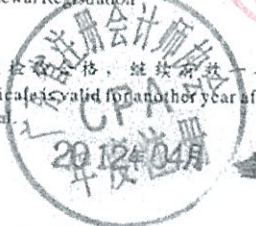 Renewal Registration
检验合格，继续有效一
icate is valid for another year af
al.
广东省注册会计师协会
CPA
2012年04月
年检注册